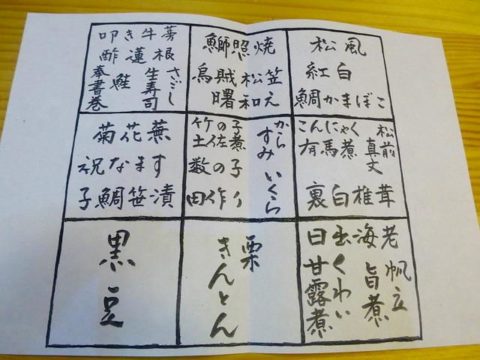 叩き牛蒡
酢蓮根
奉書巻
鮭
生寿司
さごし
鰤照焼
烏賊松笠
曙和え
松風
紅白
鯛かまぼこ
菊花蕪
祝なます
子鯛笹漬
竹の子
土佐煮
数の子
田作り
からすみ
いくら
こんにゃく
有馬煮
松前
真丈
裏白椎茸
黒豆
栗
きんとん
海老
旨煮
帆立
出くわい
日甘露煮